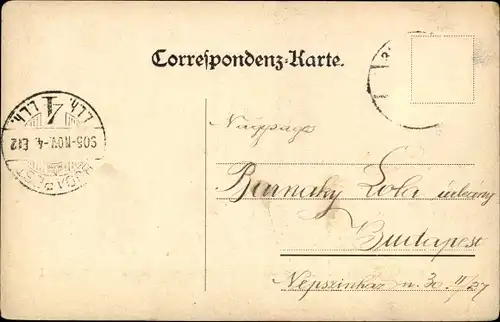 Correspondenz-Karte.
Nagysags
Burnuky Lola úrleány
Budapest
Népszinház u. 30. II/27
905-NOV.-4. E12
BUDAPEST
4